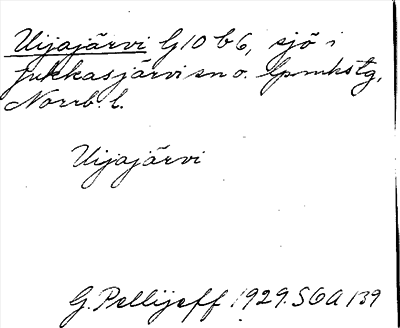 Uijajärvi G10 b6, sjö i
Jukkasjärvi sn o. lpmkstg,
Norrb. l.
Uijajärvi
G. Pellijeff 1929. SGA 139